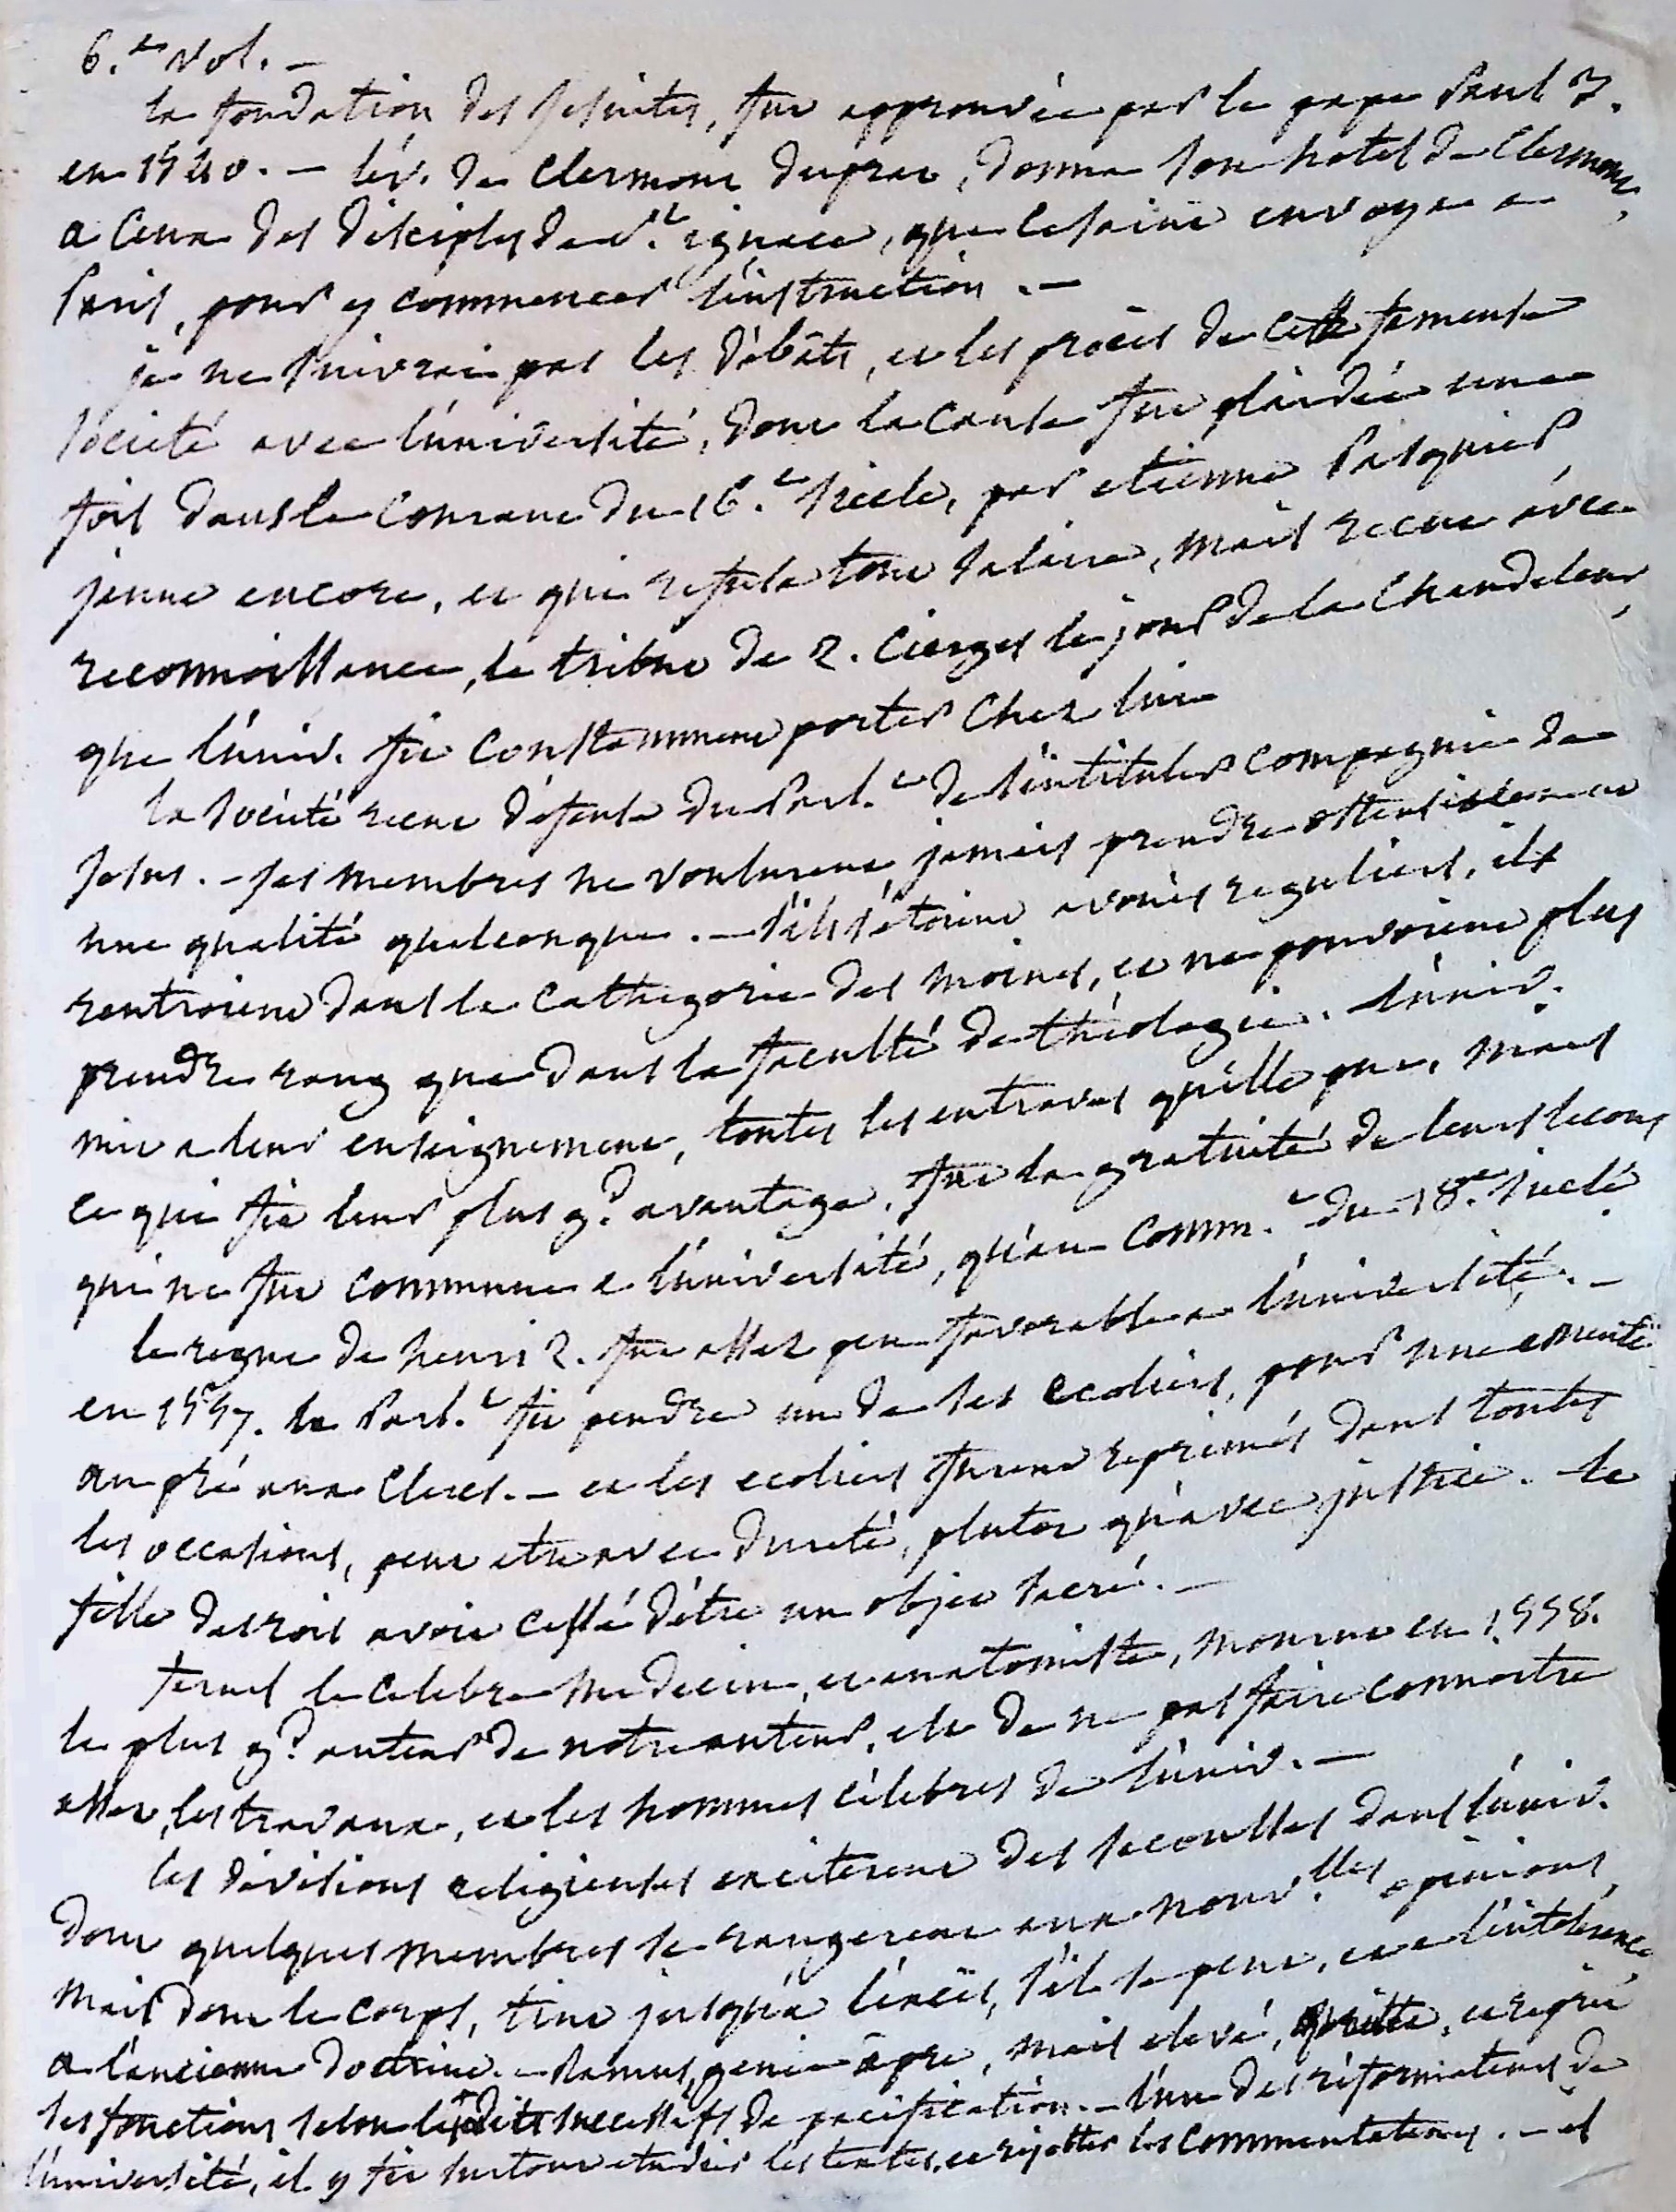 6.e Vol. —
la fondation des Jesuites, fut approuvée par le pape Paul 3.
en 1540. — l'év. de Clermont duprat, donna son hotel de Clermont,
a ceux des disciples de st. ignace, que le saint envoya a
Paris, pour y commencer l'instruction. —
je ne suivrai pas les débâts, et les procès de cette fameuse
société avec l'université, dont la cause fut plaidée une
fois dans le courant du 16.e siecle, par etienne Pasquier
jeune encore, et qui refusa tout salaire, mais recut avec
reconnoissance, le tribut de 2. cierges le jour de la Chandeleur,
que l'univ. fit constamment porter chez lui
la société recut défense du Parl.t de s'intituler compagnie de
Jesus. — ses membres ne voulurent jamais prendre ostensiblement
une qualité quelconque. — s'ils s'étoient avoués reguliers, ils
rentroient dans la cathegorie des moines, et ne pouvoient plus
prendre rang que dans la faculté de théologie. l'univ.
mit a leur enseignement, toutes les entraves qu'elle put, mais
ce qui fit leur plus gd. avantage, fut la gratuité de leurs lecons
qui ne fut commune a l'université, qu'au comm.t du 18.e siecle.
le regne de henri 2. fut assez peu favorable a l'université. —
en 1557. le Parl.t fit pendre un de ses ecoliers, pour une emeute
au pré aux Clercs. — et les ecoliers furent reprimés dans toutes
les occasions, peut etre avec dureté, plutot qu'avec justice. la
fille des rois avoit cessé d'être un objet sacré. —
fernel le celebre medecin, et anatomiste, mourut en 1558.
le plus gd. de notre auteur, est de ne pas faire connoitre
assez, les travaux, et les hommes célebres de l'univ. —
les divisions religieuses exciterent des secousses dans l'univ.
dont quelques membres se rangerent aux nouv.lles opinions,
mais dont le corps, tint jusqu'a l'excès, s'il se peut, et a l'intolérance
a l'ancienne doctrine. — Ramus, genie âpre, mais elevé, quitta, et reprit
ses fonctions selon les édits successifs de pacification. — l'un des réformateurs de
l'université, il y fit surtout etudier les textes, et rejetter les commentateurs. — il